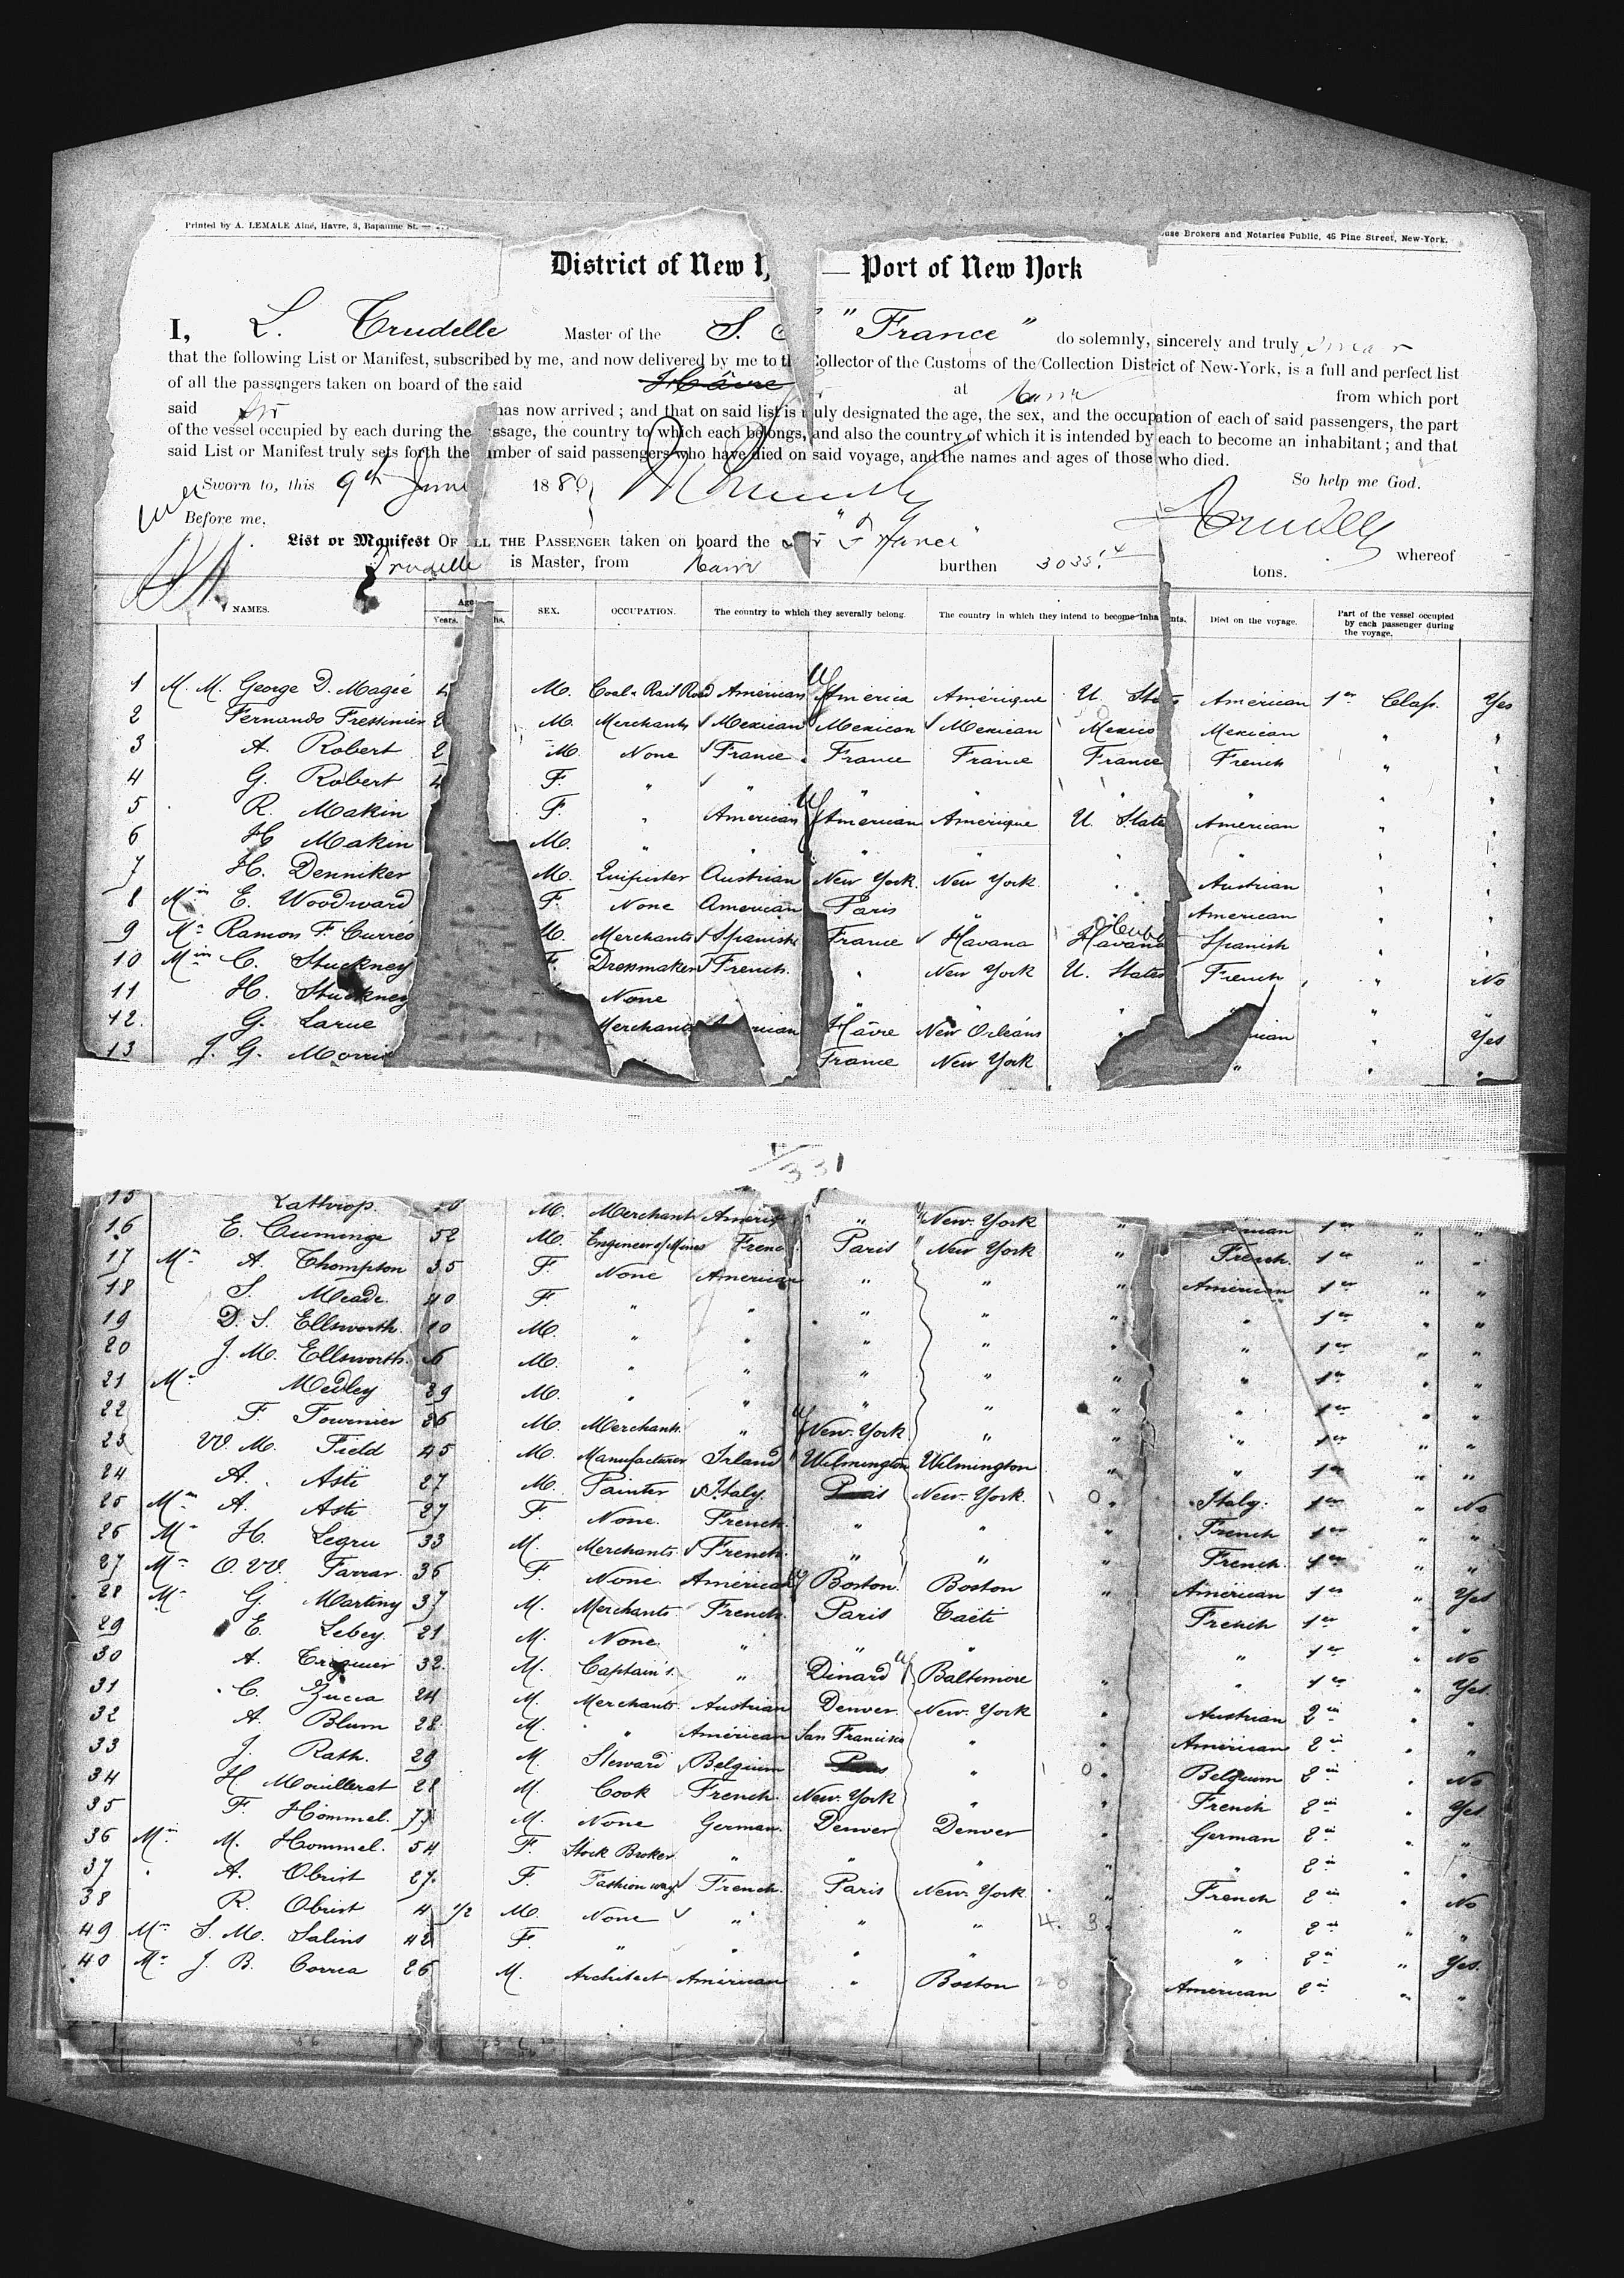 Printed by A. LEMALE Aîné, Havre, 3, Bapaume St.
use Brokers and Notaries Public, 46 Pine Street, New-York.
District of New Y — Port of New York
I, L. Trudelle Master of the S. "France" do solemnly, sincerely and truly swear
that the following List or Manifest, subscribed by me, and now delivered by me to th Collector of the Customs of the Collection District of New-York, is a full and perfect list
of all the passengers taken on board of the said Hâvre at Havre from which port
said has now arrived ; and that on said list is duly designated the age, the sex, and the occupation of each of said passengers, the part
of the vessel occupied by each during the ssage, the country to which each belongs, and also the country of which it is intended by each to become an inhabitant ; and that
said List or Manifest truly sets forth the umber of said passengers who have died on said voyage, and the names and ages of those who died.
Sworn to, this 9th June 188 So help me God.
Before me, Trudelle
List or Manifest OF ALL THE PASSENGER taken on board the "France" whereof
Trudelle is Master, from Havre burthen tons.
NAMES. Age Years. hs. SEX. OCCUPATION. The country to which they severally belong. The country in which they intend to become inha nts. Died on the voyage. Part of the vessel occupied by each passenger during the voyage.
1 M. M. George D. Magie M. Coal & Rail Road American America Amérique U. States Américan 1er Class. Yes
2 Fernando M. Merchants Mexican Mexican Mexican Mexico Mexican " "
3 A. Robert 2 M. None France France France France French " "
4 G. Robert F. " " " " " "
5 R. Makin F. " American American Amérique U. State American " "
6 H Makin M. " " " " " " " "
7 H. Denniker M. Austrian New York. New York. " Austrian " "
8 E. Woodward F. None American Paris " American " "
9 Mr Ramon F. Curreo M. Merchants Spanish France Havana Havana Cuba Spanish " "
10 C. Stuckney F. Dressmaker French. " New York U. States French " No
11 H. Stuckney None " " "
12. G. Larue Merchand rican Hâvre New Orléans " ican " Yes
13 J. G. Morri France New York " " "
331
15 Lathrop. M. Merchant Americ " New-York " rican 1er " "
16 E. Cuminge 52 M. Engineer of Mines Frenc Paris New York " French. 1er " "
17 A. Thompson 35 F. None American " " " American 1er " "
18 S. Meade. 40 F. " " " " " " 1er " "
19 D. S. Ellsworth 10 M. " " " " " " 1er " "
20 J. M. Ellsworth. 6 M. " " " " " " 1er " "
21 Mr Medley 29 M. " " " " " " 1er " "
22 F. Fournier 26 M. Merchants. " New-York " " " 1er " "
23 W. M. Field 45 M. Manufacturer Irland Wilmington Wilmington " " 1er " "
24 A. Asti 27 M. Painter Italy. Paris New-York. 1 0 Italy. 1er " No
25 A. Asti 27 F. None. French. " " " French 1er " "
26 Mr H. Legru 33 M. Merchants French. " " " French. 1er " "
27 O. W. Farrar. 36 F. None American Boston. Boston " Américan 1er " Yes
28 Mr G. Martiny 37 M. Merchants French. Paris Taëti French 1er " "
29 E. Lebey. 21 M. None " " " " 1er " No
30 A. 32. M. Captain's. " Dinard Baltimore " " 1er " Yes.
31 C. Zucca 24 M. Merchants. Austrian Denver. New-York " Austrian " "
32 A. Blum 28 M. " Américan San Francisco " " American " "
33 J. Rath. 29 M. Steward Belgium Paris " 1 0 Belguim " No
34 H Mouillerat 28 M. Cook French. New-York " " French " Yes
35 F. Hommel. M. None German. Denver Denver " German " "
36 M. Hommel. 54 F. Stock Broker " " " " " " "
37 A. Obrist 27. F. French. Paris New-York. " French " No
38 R. Obrist 4 1/2 M. None " " " 4. 3 " " "
49 S. M. Salins 42 F. " " " " " " Yes.
40 Mr J. B. Correa 26 M. Architect Américan " Boston 20 American " "